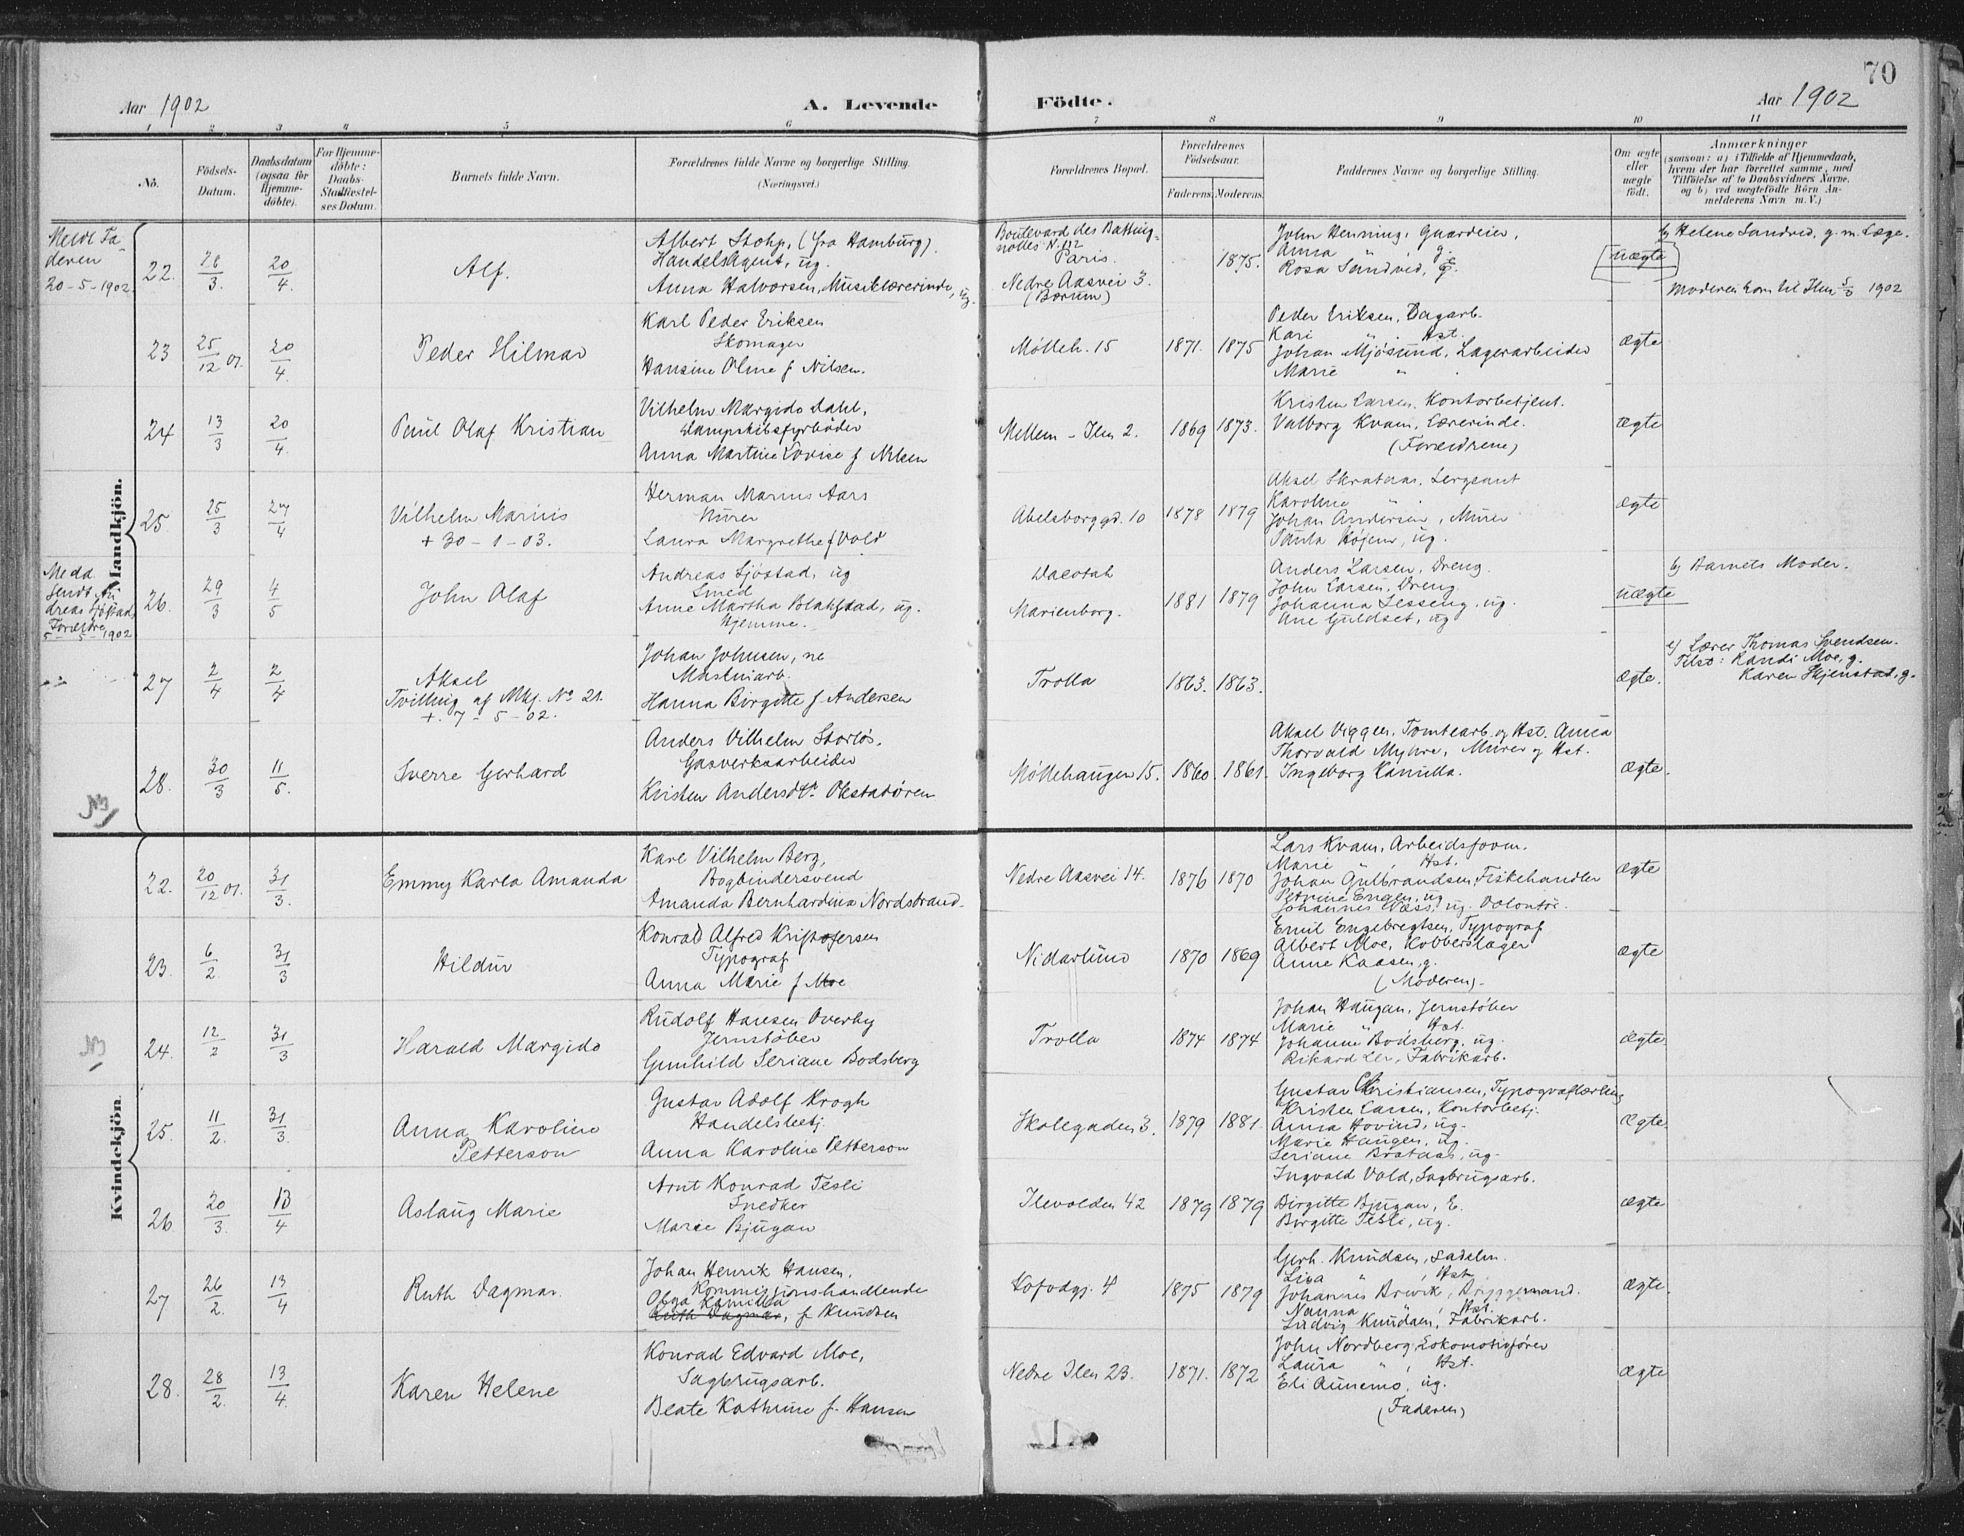 Aar 1902
A. Levende
Födte.
Aar 1902
70
1 2 3 4 5 6 7 8 9 10 11
No.
Födsels-Datum.
Daabsdatum (ogsaa for Hjemme-döbte).
For Hjemme-döbte: Daabs-Stadfæstel-ses Datum.
Barnets fulde Navn.
Forældrenes fulde Navne og borgerlige Stilling. (Næringsvei.)
Forældrenes Bopæl.
Forældrenes Födselsaar.
Faderens. Moderens.
Faddernes Navne og borgerlige Stilling.
Om ægte eller uægte födt.
Anmærkninger
(saasom: a) i Tilfælde af Hjemmedaab,
hvem der har forrettet samme, med
Tilföielse af to Daabsvidners Navne,
og b) ved uægtefödte Börn An-
melderens Navn m. V.)
Mandkjön.
Meldt Fa-
deren
20-5-1902.
22. 28/3. 20/4. Alf.
Albert Stohp, (fra Hamburg).
Handelsagent, ug.
Anna Halvorsen, Musiklærerinde, ug.
Boulevard des Batting-
nolles N. 112
Paris.
Nedre Aasvei 3.
(Bærum)
1875.
John Henning, Gaardeier,
Anna " g.
Rosa Sandvid, g.
uægte
b) Helene Sandvid, g. m. Læge.
Moderen kom til Ilen 5/3 1902
23 25/12 01. 20/4. Peder Hilmar
Karl Peder Eriksen
Skomager
Hansine Oline f Nilsen.
Mølleh. 15 1871. 1875
Peder Eriksen, Dagarb.
Kari " , Hst.
Johan Mjösund, Lagerarbeider
Marie "
ægte
24 13/3 20/4. Paul Olaf Kristian
Vilhelm Margido Dahl,
Dampskibsfyrböder
Anna Martine Lovise f Nilsen
Mellem-Ilen 2. 1869 1873.
Kristen Larsen, Kontorbetjent.
Valborg Kvam, Lærerinde.
(Forældrene)
ægte
25. 25/3 27/4 Vilhelm Marius
+ 30-1-03.
Herman Marius Aars
Murer
Laura Margrethe f Vold
Abelsborggd. 10 1878 1879
Aksel Skrataas, Sergsant
Karoline "
Johan Andersen, Murer
Paula Höjem, ug.
ægte
Medd.
sendt An
dreas Sjöstad,
Forældre
5-5-1902
26. 29/3 4/5 John Olaf
Andreas Sjöstad, ug
Smed
Anne Martha Blakstad, ug.
Hjemme.
Dacotah
Marienborg.
1881 1879
Anders Larsen, Dreng.
John Larsen, Dreng.
Johanna Lesseng, ug.
Ane Guldset, ug
uægte
b) Barnets Moder.
27 2/4 2/4 Aksel
Tvilling af Mkj. No 21.
+. 7-5-02.
Johan Johnsen, ne
Maskinarb.
Hanna Birgitte f Andersen
Trolla 1863. 1863.
ægte.
a) Lærer Thomas Svendsen.
Tilst: Randi Moe, g.
Karen Skjenstad, g.
28. 30/3 11/5. Sverre Gerhard
Anders Vilhelm Storløs,
Gasverksarbeider
Kristen Andersdtr Okstadören
Møllehaugen 15. 1860. 1861.
Aksel Viggen, Tomtearb. og Hst. Anna
Thorvald Myhre, Murer og Hst.
Ingeborg Kamilla.
ægte.
NB
Kvindekjön.
22. 20/12 01. 31/3. Emmy Karla Amanda
Karl Vilhelm Berg,
Bogbindersvend
Amanda Bernhardina Nordstrand.
Nedre Aasvei 14. 1876 1870
Lars Kvam, Arbeidsform.
Marie " , Hst.
Johan Gulbrandsen, Fiskehandler
Petrine Engen, ug
Johannes Næss, ug. Volontör.
ægte
23. 6/2. 31/3 Hildur
Konrad Alfred Kristofersen
Typograf
Anna Marie f Moe
Nidarlund 1870 1869
Emil Engebregtsen, Typograf
Albert Moe, Kobberslager
Anne Kaasen, g.
(Moderen).
ægte
NB
24. 12/2 31/3 Harald Margido
Rudolf Hansen Overby
Jernstöber
Gunhild Seriane Bodsberg
Trolla 1874 1874
Johan Haugan, Jernstöber
Marie " Hst.
Johanne Bodsberg, ug.
Rikard Ler, Fabrikarb.
ægte.
25. 11/2. 31/3. Anna Karoline
Petterson
Gustav Adolf Krogh
Handelsbetj.
Anna Karoline Petterson
Skolegaden 3. 1879 1881.
Gustav Christiansen, Typograflærling
Kristen Larsen, Kontorbetj.
Anna Hovind, ug.
Marie Haugen, ug.
Seriane Brataas, ug.
Ægte.
26 20/3. 13/4 Aslaug Marie
Arnt Konrad Tesli
Snedker
Marie Bjugan
Ilevolden 42 1879 1879
Ingvald Vold, Sagbrugsarb.
Birgitte Bjugan, E.
Birgitte Tesli, ug.
ægte
27 26/2. 13/4 Ruth Dagmar.
Johan Henrik Hansen,
Kommissjonshandlende
Olga Kamilla
Ruth Dagmar, f Knudsen
Hofodgj. 4 1875 1879
Gerh. Knudsen, Sadelm.
Lisa " , Hst
Johannes Brevik, Bryggemand.
Nanna " , Hst.
Ludvig Knudsen, Fabrikarb.
ægte.
28. 28/2. 13/4. Karen Helene
Konrad Edvard Moe,
Sagbrugsarb.
Beate Kathrine f. Hansen
Nedre Ilen 23. 1871. 1872
John Nordberg, Lokomotivförer
Laura " , Hst.
Eli Aunemo, ug.
(Faderen)
ægte